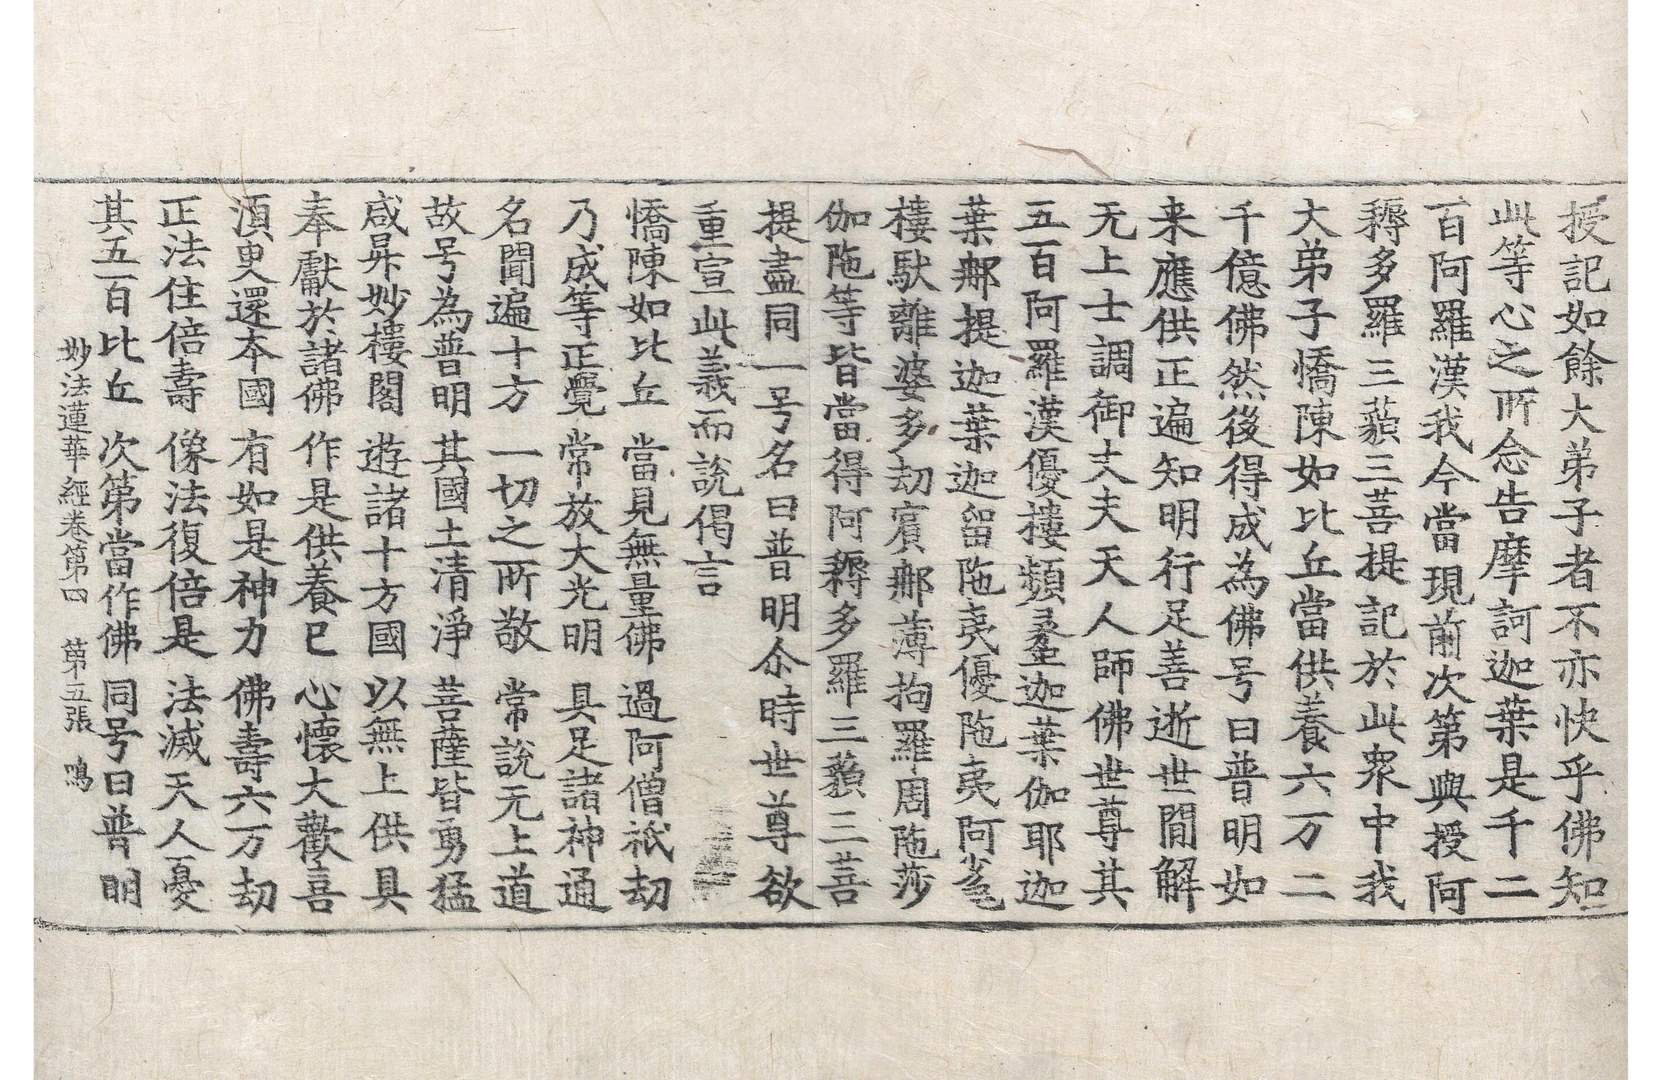 授記如餘大弟子者不亦快乎佛知
此等心之所念告摩訶迦葉是千二
百阿羅漢我今當現前次第與授阿
耨多羅三藐三菩提記於此衆中我
大弟子憍陳如比丘當供養六万二
千億佛然後得成為佛号曰普明如
来應供正遍知明行足善逝世間解
无上士調御丈夫天人師佛世尊其
五百阿羅漢優樓頻螺迦葉伽耶迦
葉那提迦葉迦留陁夷優陁夷阿㝹
樓馱離婆多劫賓那薄拘羅周陁莎
伽陁等皆當得阿耨多羅三藐三菩
提盡同一号名曰普明尒時世尊欲
重宣此義而說偈言
憍陳如比丘 當見無量佛 過阿僧祇劫
乃成等正覺 常放大光明 具足諸神通
名聞遍十方 一切之所敬 常說无上道
故号為普明 其國土清淨 菩薩皆勇猛
咸昇妙樓閣 遊諸十方國 以無上供具
奉獻於諸佛 作是供養已 心懷大歡喜
湏臾還本國 有如是神力 佛壽六万劫
正法住倍壽 像法復倍是 法滅天人憂
其五百比丘 次第當作佛 同号曰普明
妙法蓮華經卷第四 第五張 鳴